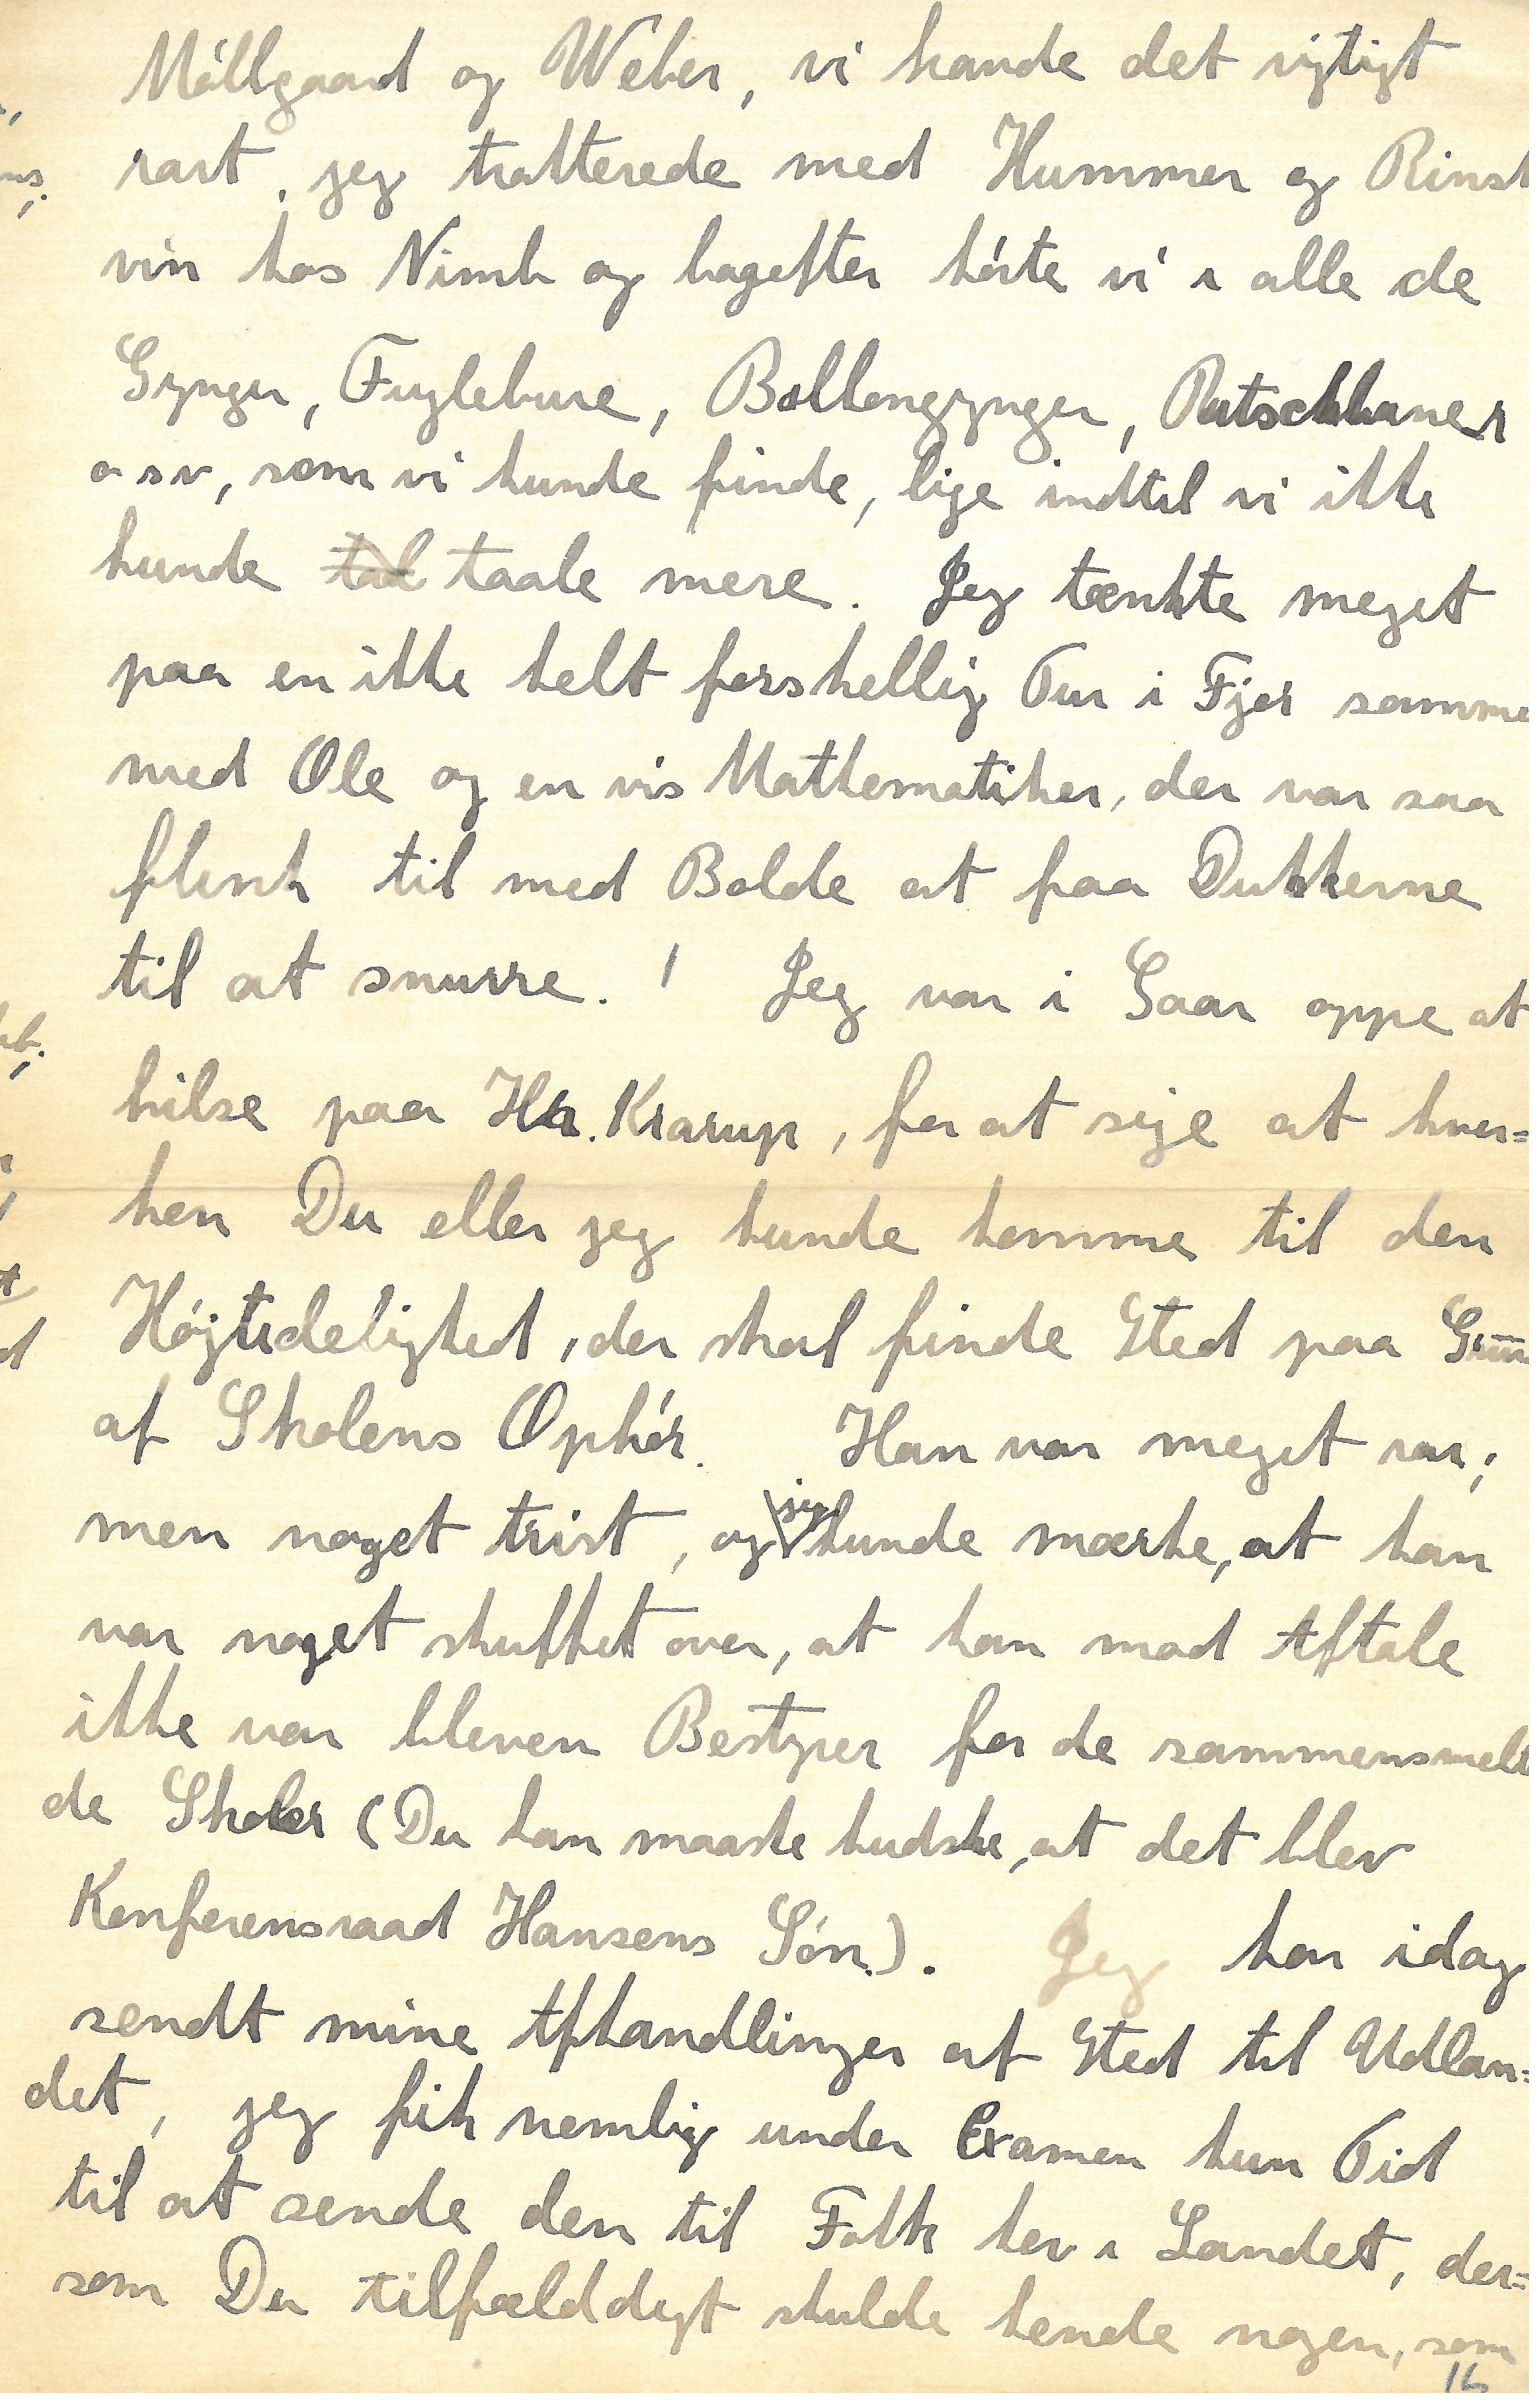 Møllgaard og Weber, vi havde det rigtigt
rart, jeg trakterede med Hummer og Rinsk
vin hos Nimb og bagefter kørte vi i alle de
Gynger, Fuglebure, Ballongynger, Rutschbaner
osv, som vi kunde finde, lige indtil vi ikke
kunde taale mere. Jeg tænkte meget
paa en ikke helt forskellig Tur i Fjor samme
med Ole og en vis Mathematiker, der var saa
flink til med Bolde at faa Dukkerne
til at snurre. ! Jeg var i Gaar oppe at
hilse paa Hr. Krarup, for at sige at hver=
ken Du eller jeg kunde komme til den
Højtidelighed, der skal finde Sted paa Grun
af Skolens Ophør. Han var meget rar;
men noget trist, og jeg kunde mærke, at han
var noget skuffet over, at han mod Aftale
ikke var bleven Bestyrer for de sammensmelt
de Skoler (Du kan maaske huske, at det blev
Konferensraad Hansens Søn.). Jeg har idag
sendt mine Afhandlinger af Sted til Udlan=
det, jeg fik nemlig under Examen kun Tid
til at sende den til Folk her i Landet, der=
som Du tilfælddigt skulde kende nogen, som
16